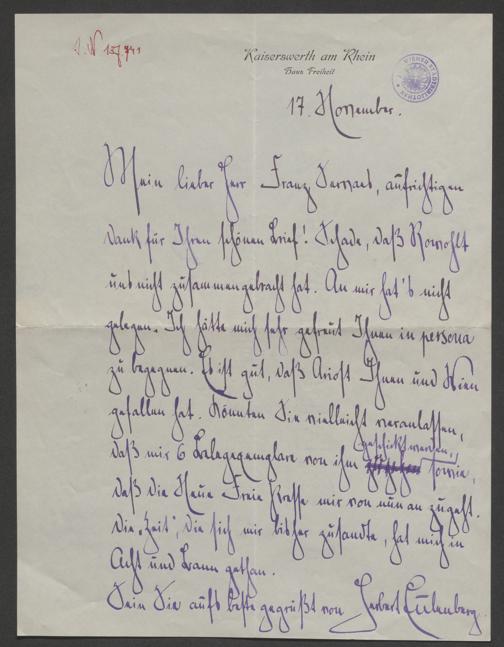 J.N 157941
Kaiserswerth am Rhein
Haus Freiheit
WIENER STADTBIBLIOTHEK
17. November.
Mein lieber Herr Franz Servaes, aufrichtigen
Dank für Ihren schönen Brief! Schade, daß Rowohlt
uns nicht zusammengebracht hat. An mir hat's nicht
gelegen. Ich hätte mich sehr gefreut Ihnen in persona
zu begegnen. Es ist gut, daß Ariost Ihnen und Wien
gefallen hat. Könnten Sie vielleicht veranlassen,
geschickt werden,
daß mir 6 Belegexemplare von ihm sowie,
daß die Neue Freie Presse mir von nun an zugeht.
Die „Zeit", die sich mir bisher zusandte, hat mich in
Acht und Bann gethan.
Sein Sie aufs beste gegrüßt von Herbert Eulenberg